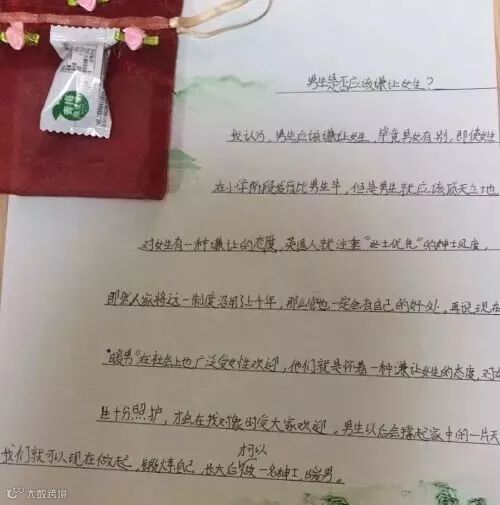 男生是否应该谦让女生？
我认为，男生应该谦让女生，毕竟男女有别，即使女生
在小学阶段发育比男生早，但是男生就应该顶天立地
对女生有一种谦让的态度，英国人就注重“女士优先”的绅士风度，
即然人家将这一制度沿用了上千年，那么它也一定会有自己的好处，再说现在
“暖男”在社会上也广泛受女性欢迎，他们就是怀着一种谦让女生的态度，对女
生十分照护，才会在找对象时受大家欢迎。男生以后会撑起家中的一片天
可以
我们就可以现在做起，锻炼自己，长大后做一名绅士暖男。
大数跨境